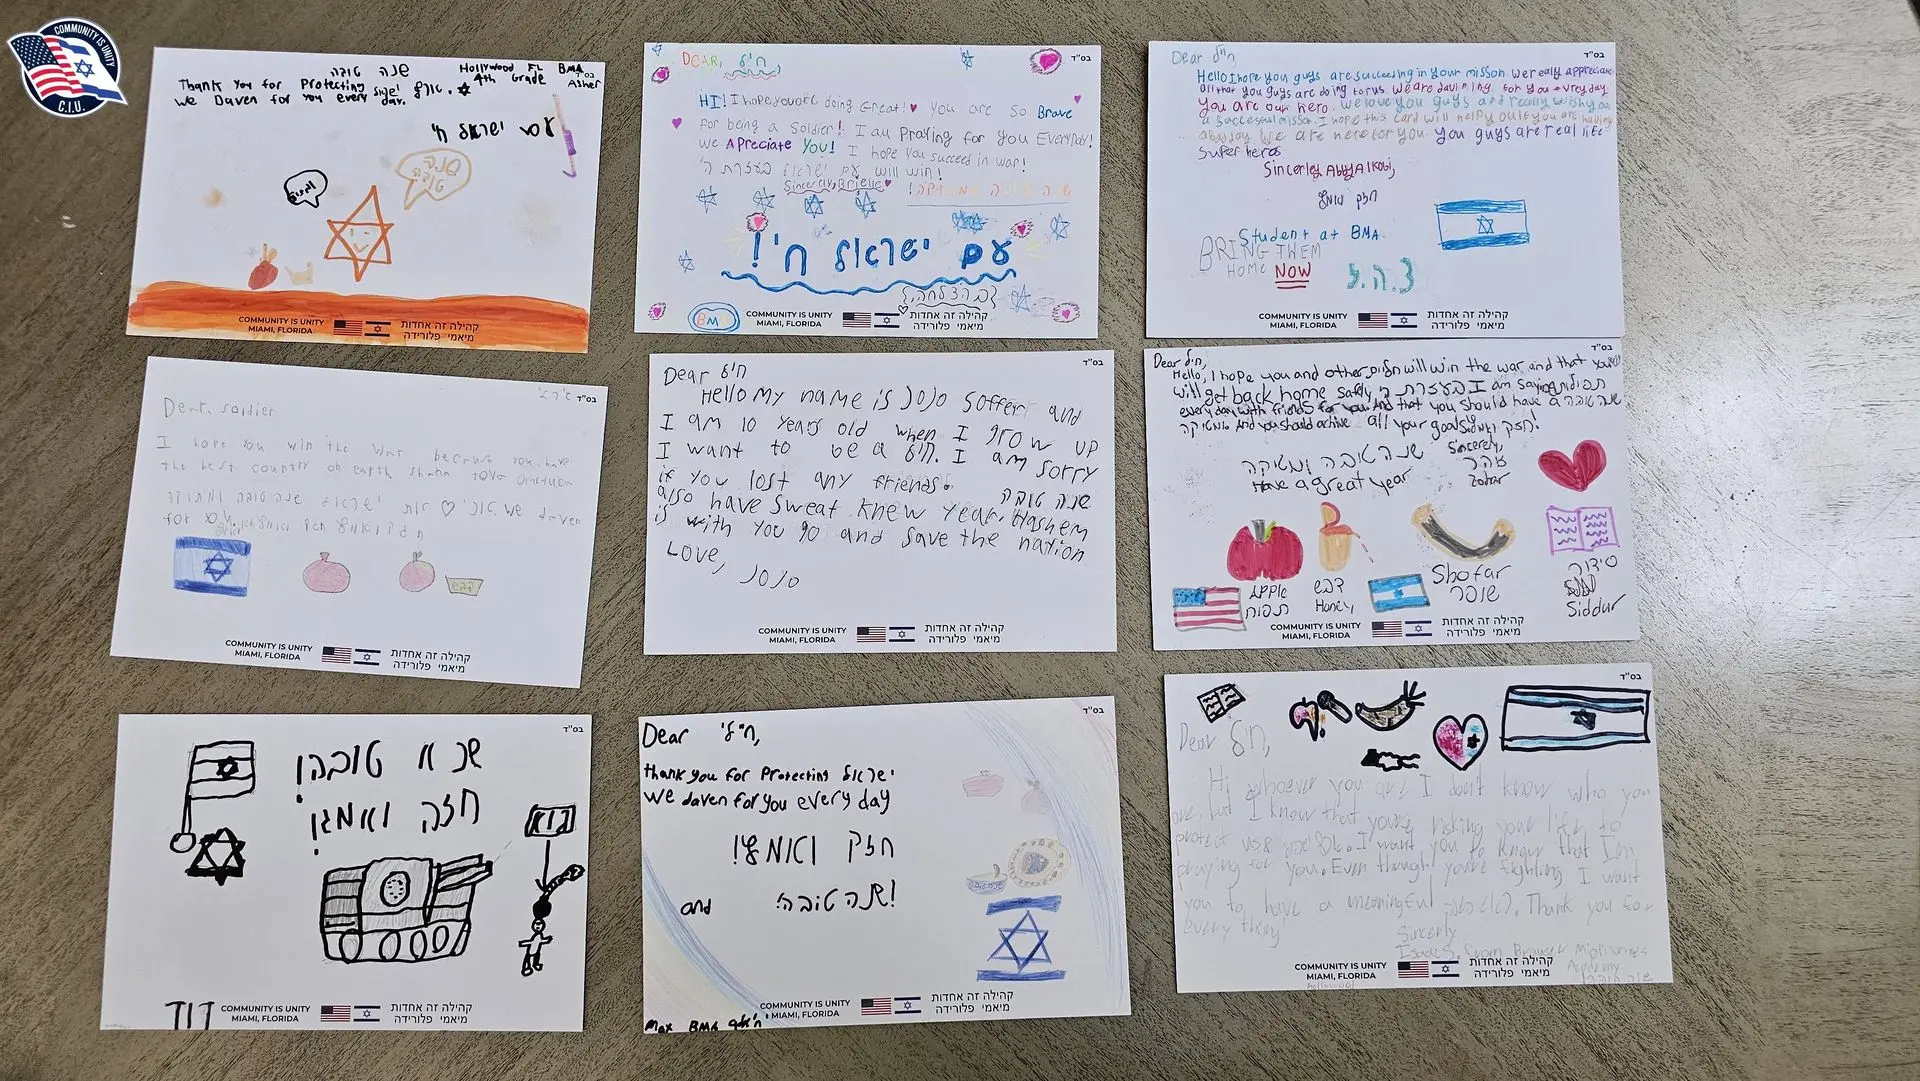 COMMUNITY IS UNITY
C.I.U.
בס"ד
שנה טובה
Hollywood FL BMA
Thank you for Protecting
4th Grade
Asher
We Daven for you every day.
עם ישראל חי
שנה
טובה
COMMUNITY IS UNITY
MIAMI, FLORIDA
קהילה זה אחדות
מיאמי פלורידה
בס"ד
DEAR, חייל
HI! I hope you are doing Great! You are so Brave
for being a Soldier! I am Praying for you EveryDay!
We Apreciate You! I hope you succeed in war!
עם ישראל בעזרת ה' will win!
Sincerely, Brielle
שנה טובה ומתוקה!
עם ישראל חי!
בהצלחה
BMA
COMMUNITY IS UNITY
MIAMI, FLORIDA
קהילה זה אחדות
מיאמי פלורידה
בס"ד
Dear חייל
Hello I hope you guys are succeeding in your misson. We really appreciate
all that you guys are doing for us. We are davining for you evrey day
You are our hero. We love you guys and really wish you
a successful misson. I hope this card will help you if you are having
a bad day. We are here for you. You guys are real life
super heros
Sincerley Abby Alkobi,
חזק ואמץ
Student at BMA.
BRING THEM
HOME NOW
צ.ה.ל
COMMUNITY IS UNITY
MIAMI, FLORIDA
קהילה זה אחדות
מיאמי פלורידה
בס"ד
Dear, soldier
I hope you win the war because you have
the best country on earth shana tova
שנה טובה ומתוקה
We daven
for you
דבש
COMMUNITY IS UNITY
MIAMI, FLORIDA
קהילה זה אחדות
מיאמי פלורידה
בס"ד
Dear חייל
Hello My name is JoJo Soffer and
I am 10 years old when I grow up
I want to be a חייל. I am sorry
if you lost any friends. שנה טובה
also have sweat knew year. Hashem
is with you go and save the nation
Love,
JoJo
COMMUNITY IS UNITY
MIAMI, FLORIDA
קהילה זה אחדות
מיאמי פלורידה
בס"ד
Dear חייל,
Hello, I hope you and other חיילים will win the war and that you
will get back home safely בעזרת ה I am saying תפילות
every day with friends for you. And that you should have a שנה טובה
ומתוקה And you should achive all your goals! חזק ואמץ!
שנה טובה ומתוקה
Have a great year
Sincerely,
זוהר
Zohar
Apple
תפוח
דבש
Honey
Shofar
שופר
סידור
Siddur
COMMUNITY IS UNITY
MIAMI, FLORIDA
קהילה זה אחדות
מיאמי פלורידה
בס"ד
שנא טובה!
חזה ואמגן!
בוא
דוד
COMMUNITY IS UNITY
MIAMI, FLORIDA
קהילה זה אחדות
מיאמי פלורידה
בס"ד
Dear חייל,
thank you for Protecting ישראל
We daven for you every day
חזק ואמץ!
and שנה טובה!
Max BMA
COMMUNITY IS UNITY
MIAMI, FLORIDA
קהילה זה אחדות
מיאמי פלורידה
בס"ד
Dear חייל,
Hi whoever you are I don't know who you
are, but I know that youre risking your life to
protect us ישראל. I want you to know that I'm
praying for you. Even though you're fighting I want
you to have a meaningful Thank you for
every thing
Sincerly
Isaac S. Brauser Maimonides
Academy
Hollywood
COMMUNITY IS UNITY
MIAMI, FLORIDA
קהילה זה אחדות
מיאמי פלורידה